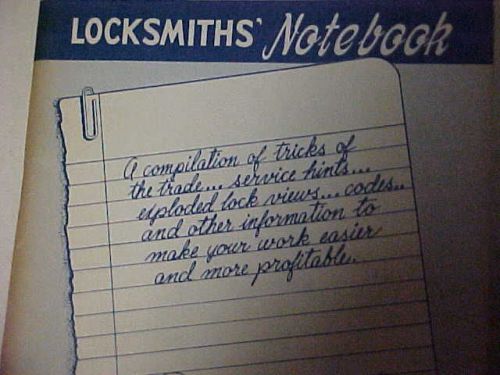 LOCKSMITHS' Notebook
A compilation of tricks of
the trade... service hints...
exploded lock views... codes..
and other information to
make your work easier
and more profitable.